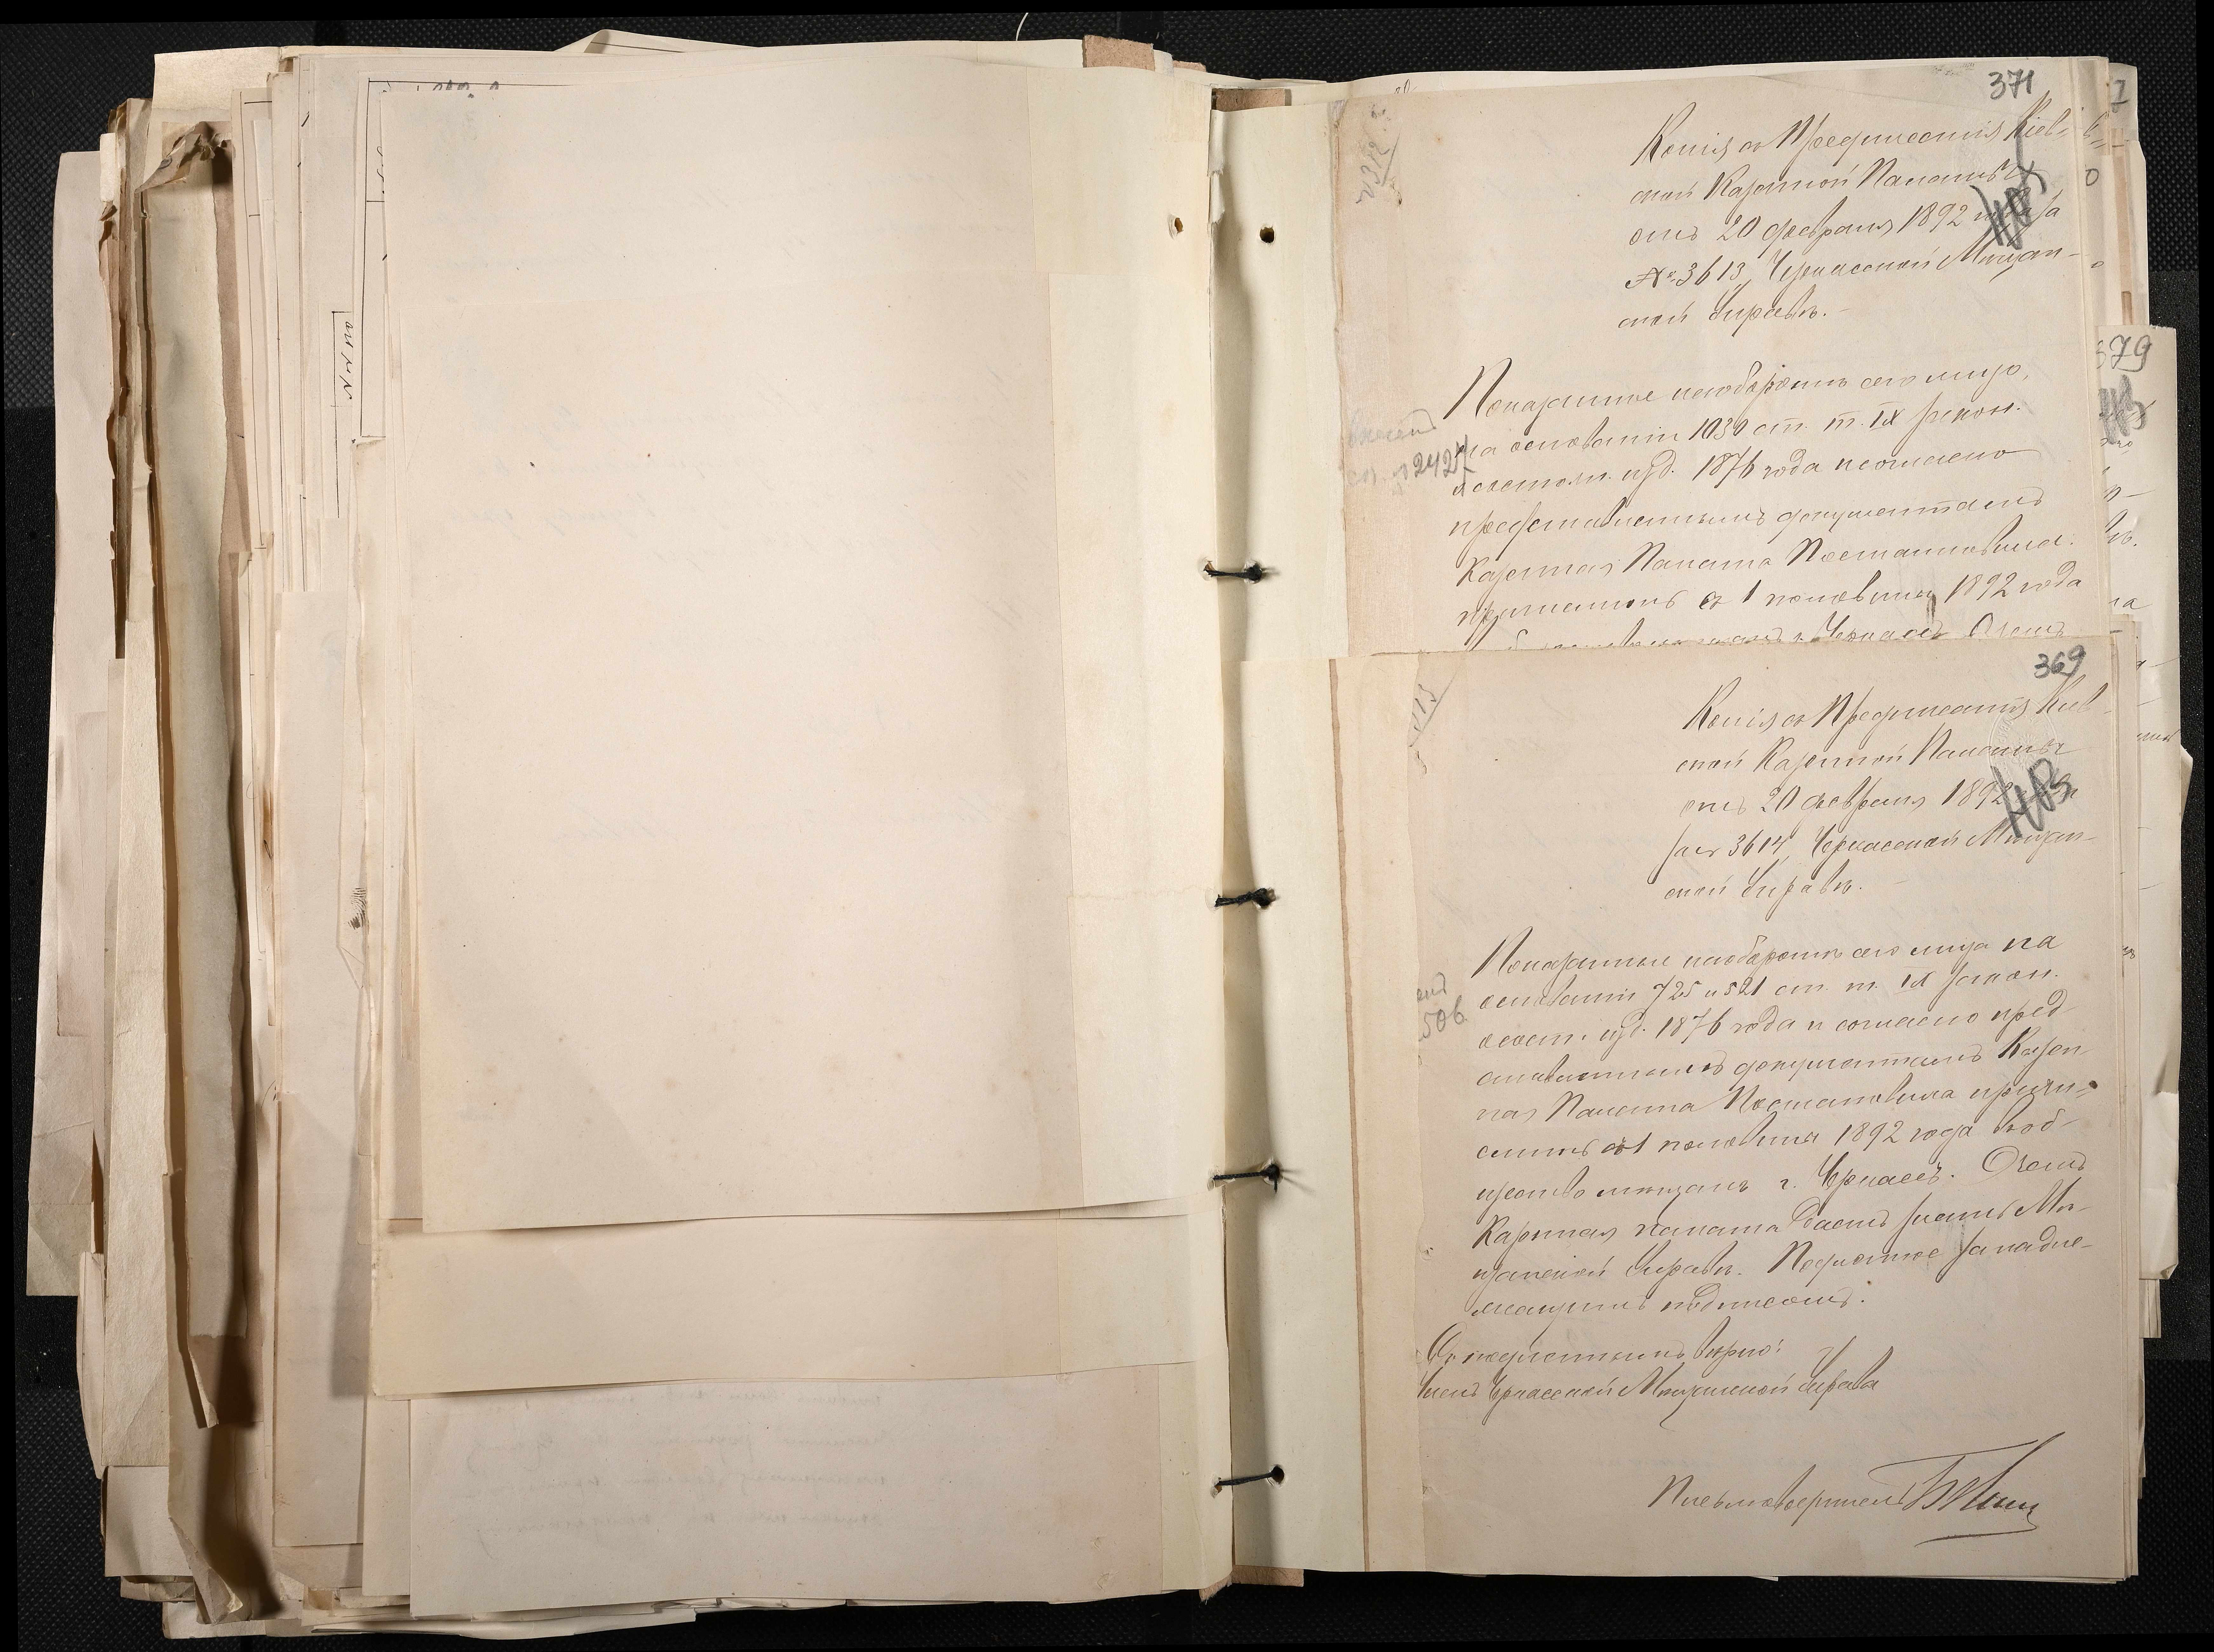 371
Копія съ Предписанія Кіев-
ской Казенной Палаты
отъ 20 февраля 1892 года за
№ 3613, Черкасской Мѣщан-
ской Управѣ.
Показанные наоборотѣ сего лица,
на основаніи 1030 ст. т. IX закон.
о состоян. изд. 1876 года и согласно
представленнымъ документамъ
Казенная Палата Постановила:
причислить съ 1 половины 1892 года
г. Черкассъ. О чемъ
2425
369
Копія съ Предписанія Кіев-
ской Казенной Палаты
отъ 20 февраля 1892
за № 3614, Черкасской Мѣщан-
ской Управѣ.
Показанные наоборотѣ сего лица на
основаніи 725 и 521 ст. т. IX закон.
о сост. изд. 1876 года и согласно пред-
ставленнымъ документамъ Казен-
ная Палата Постановила причи-
слить съ 1 половины 1892 года въ об-
щество мѣщанъ г. Черкассъ. О чемъ
Казенная палата даетъ знать Мѣ-
щанской Управѣ. Подлинное за надле-
жащимъ подписомъ.
Съ подлиннымъ вѣрно:
Членъ Черкасской Мѣщанской Управы
Письмоводитель
506
379